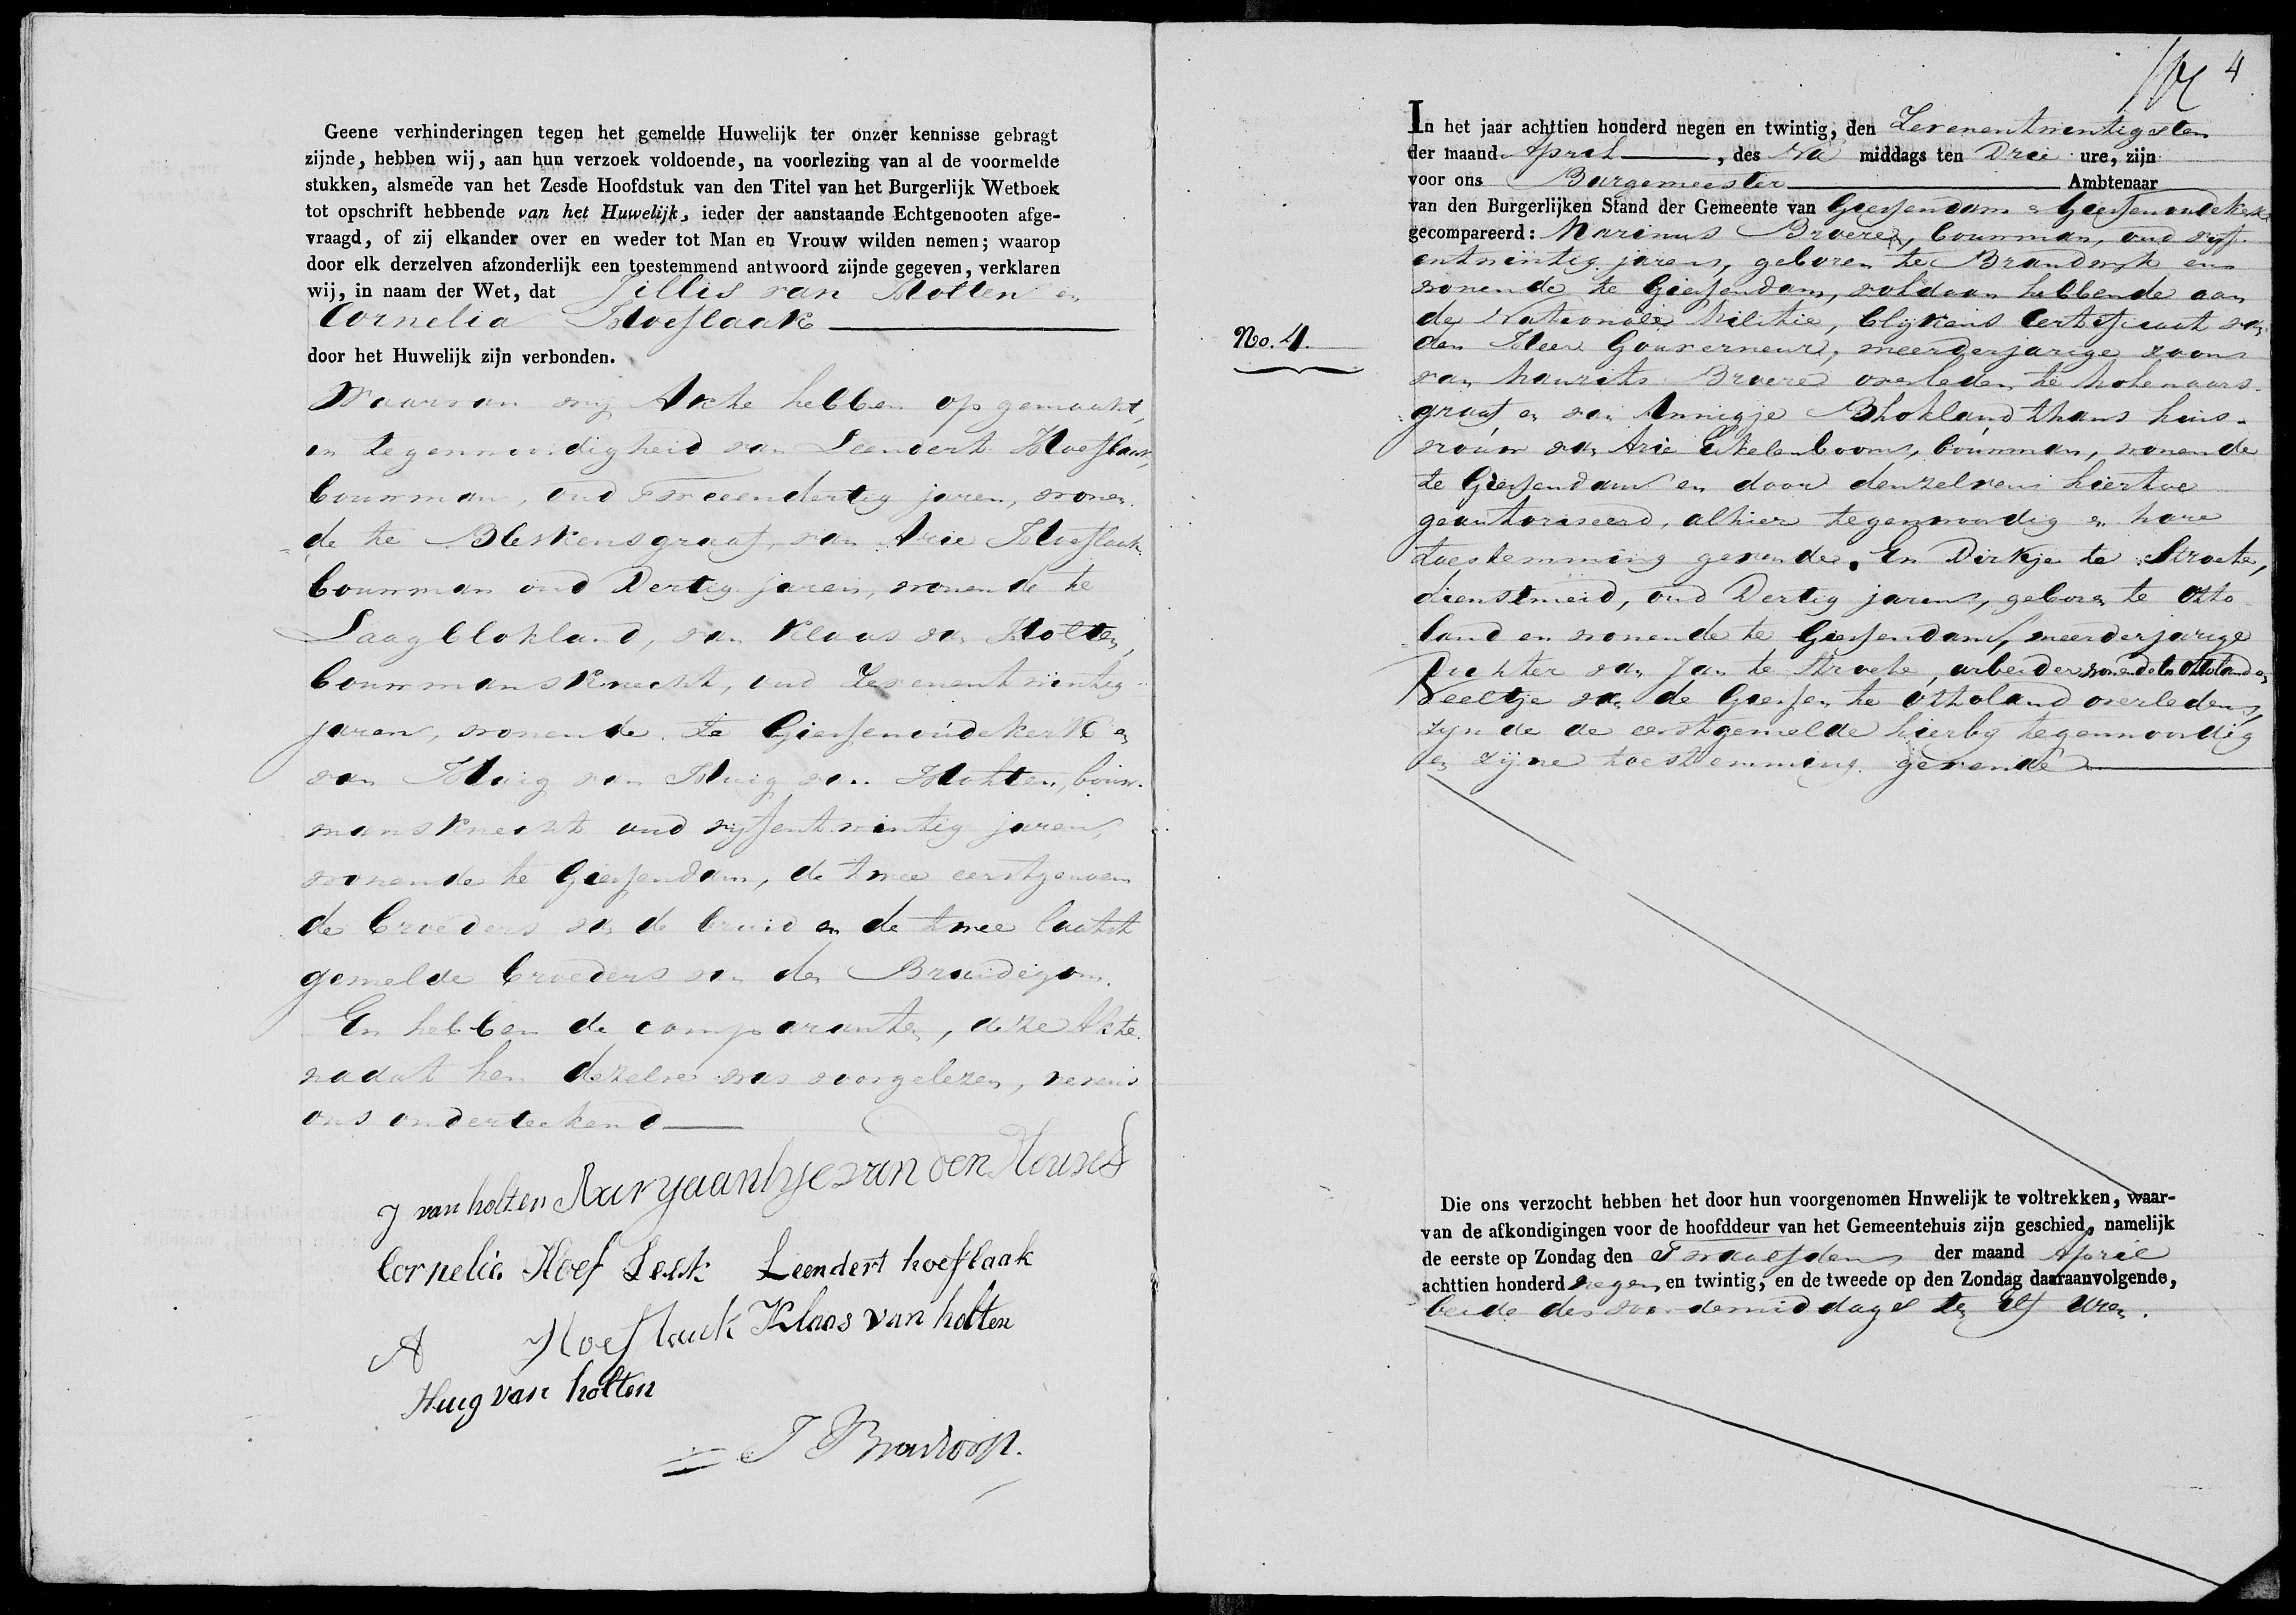 Geene verhinderingen tegen het gemelde Huwelijk ter onzer kennisse gebragt
zijnde, hebben wij, aan hun verzoek voldoende, na voorlezing van al de voormelde
stukken, alsmede van het Zesde Hoofdstuk van den Titel van het Burgerlijk Wetboek
tot opschrift hebbende van het Huwelijk, ieder der aanstaande Echtgenooten afge-
vraagd, of zij elkander over en weder tot Man en Vrouw wilden nemen; waarop
door elk derzelven afzonderlijk een toestemmend antwoord zijnde gegeven, verklaren
wij, in naam der Wet, dat Jillis van Holten en
Cornelia Hoeflaak
door het Huwelijk zijn verbonden.
Waarvan wij Akte hebben opgemaakt,
in tegenwoordigheid van Leendert Hoeflaak,
bouwman, oud Tweeendertig jaren, wonen
de te Bleskensgraaf, van Arie Hoeflaak
bouwman oud Dertig jaren, wonende te
Laagblokland, van Klaas van Holten,
bouwmansknecht, oud Zevenentwintig
jaren, wonende te Giessenoudekerk en
van Huig van Huig van Hohten, bouw-
mansknecht oud vijfentwintig jaren,
wonende te Giessendam, de twee eerstgenoem
de broeders van de bruid en de twee laatst
gemelde broeders van den Bruidegom.
En hebben de comparanten, deze Akte
nadat hen dezelve was voorgelezen, nevens
ons onderteekend
J van holten Aaryaantye van den Heuvel
Cornelia Hoef Leak Leendert hoeflaak
A Hoeflaak Klaas van holten
Huig van holten
4
No. 4.
In het jaar achttien honderd negen en twintig, den Zevenentwintigsten
der maand April, des Na middags ten Drie ure, zijn
voor ons Burgemeester Ambtenaar
van den Burgerlijken Stand der Gemeente van Giessendam en Giessenoudekerk
gecompareerd: Marinus Broere, bouwman, oud vijf-
entwintig jaren, geboren te Brandwijk en
wonende te Giessendam, voldaan hebbende aan
de Nationale Militie, blijkens Certificaat van
den Heer Gouverneur, meerderjarige zoon
van Maurits Broere overleden te Molenaars-
graaf en van Annigje Bhokland thans huis-
vrouw van Arie Eikelenboom, bouwman, wonende
te Giessendam en door denzelven hiertoe
geauthoriseerd, alhier tegenwoordig en hare
toestemming gevende. En Dirkje te Stroete,
dienstmeid, oud Dertig jaren, geboren te Otto
land en wonende te Giessendam, meerderjarige
Dochter van Jan te Stroete, arbeider wonende te Ottoland en
Neeltje van de Giessen te Ottoland overleden,
zijnde de eerstgemelde hierbij tegenwoordig
en zijne toestemming gevende
Die ons verzocht hebben het door hun voorgenomen Hnwelijk te voltrekken, waar-
van de afkondigingen voor de hoofddeur van het Gemeentehuis zijn geschied, namelijk
de eerste op Zondag den Twaalfden der maand April
achttien honderd negen en twintig, en de tweede op den Zondag daaraanvolgende,
beide des voordemiddags ten elf uren.